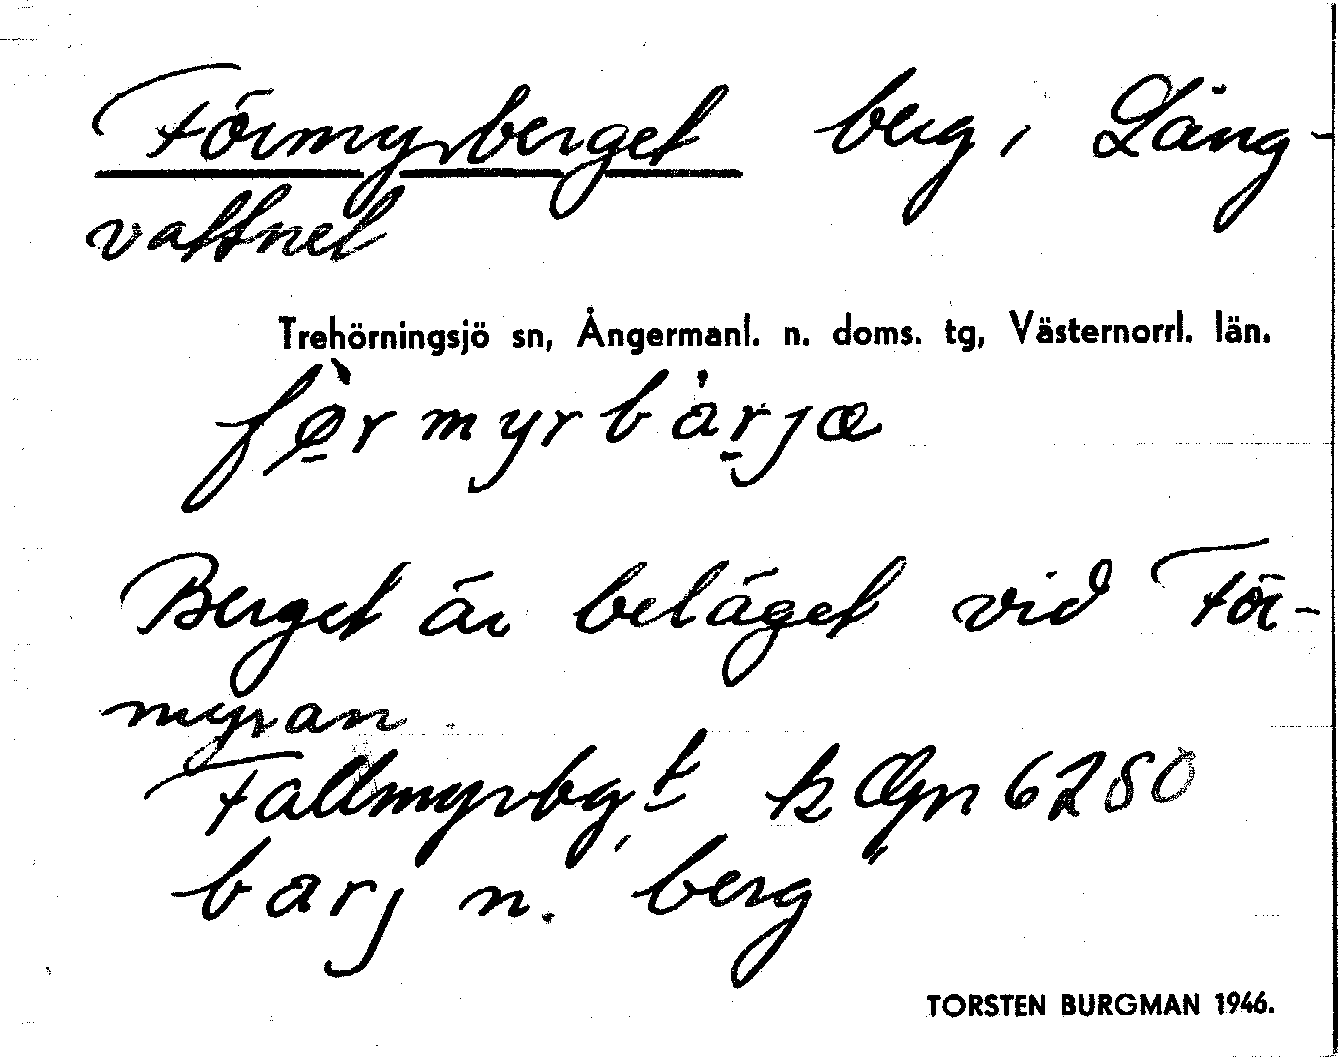 Förmyrberget berg, Lång-
vattnet
Trehörningsjö sn, Ångermanl. n. doms. tg, Västernorrl. län.
fø̀rmyrbàrjæ
Berget är beläget vid För-
myran.
Fallmyrbgt k Ögn 6280
barj n. "berg"
TORSTEN BURGMAN 1946.